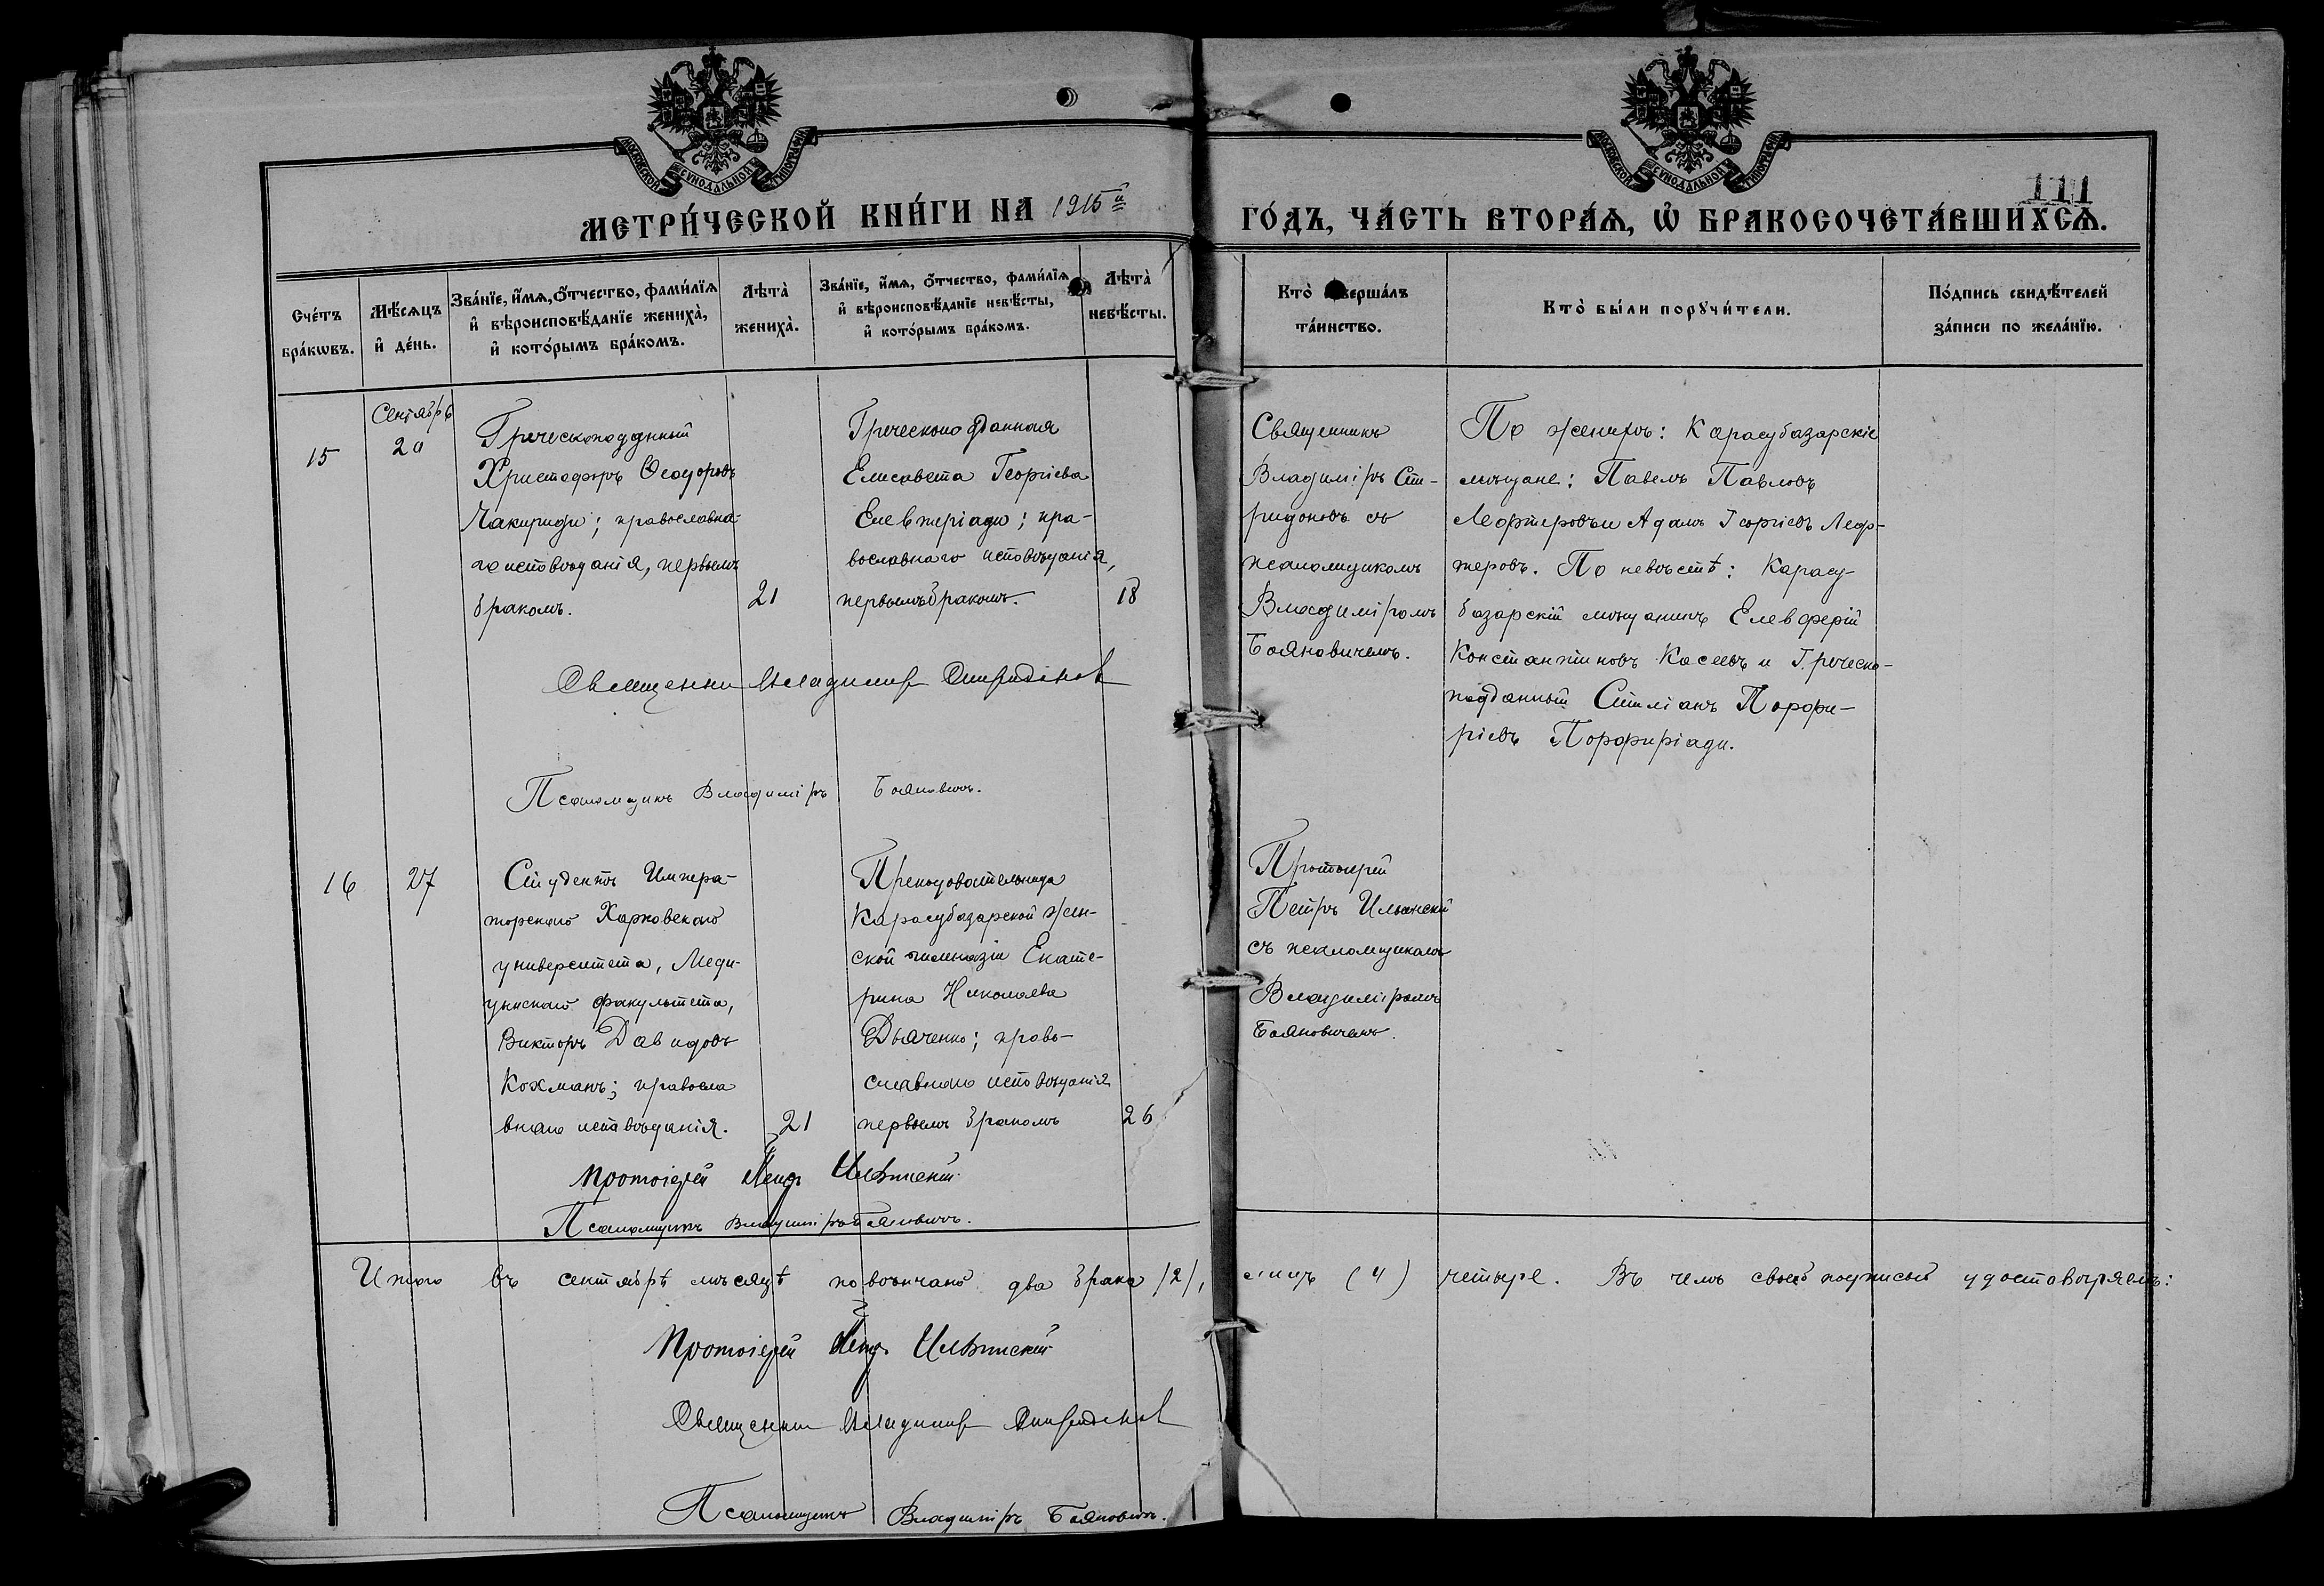 МОСКОВСКОЙ СѴНОДАЛЬНОЙ ТИПОГРАФІИ
МОСКОВСКОЙ СѴНОДАЛЬНОЙ ТИПОГРАФІИ
111
МЕТРИ́ЧЕСКОЙ КНИ́ГИ НА 1915й
ГО́ДЪ, ЧА́СТЬ ВТОРА́Ѧ, Ѡ БРАКОСОЧЕТА́ВШИХСѦ.
Сче́тъ бра́кѡвъ.
Мѣ́сѧцъ и де́нь.
Зва́нїе, и́мѧ, о́тчество, фами́лїѧ и вѣроисповѣ́данїе жениха̀, и кото́рымъ бра́комъ.
Лѣта̀ жениха̀.
Зва́нїе, и́мѧ, о́тчество, фами́лїѧ и вѣроисповѣ́данїе невѣ́сты, и кото́рымъ бра́комъ.
Лѣта̀ невѣ́сты.
Кто̀ соверша́лъ та́инство.
Кто̀ бы́ли порꙋчи́тели.
По́дпись свидѣ́телей за́писи по жела́нїю.
15
Сентябрь
20
Греческоподданный
Христофоръ Ѳеодоровъ
Чакириди; православна-
го исповѣданія, первымъ
бракомъ.
21
Греческоподданная
Елисавета Георгіева
Елевтеріади; пра-
вославнаго исповѣданія,
первымъ бракомъ.
18
Священникъ
Владиміръ Спи-
ридоновъ съ
псаломщикомъ
Владиміромъ
Бояновичемъ.
По женихѣ: Карасубазарскіе
мѣщане: Павелъ Павловъ
Лефтеровъ и Адамъ Георгіевъ Леф-
теровъ. По невѣстѣ: Карасу-
базарскій мѣщанинъ Елевферій
Константиновъ Косеевъ и Греческо-
подданный Стиліанъ Порфи-
ріевъ Порфиріади.
Священникъ Владимир Спиридонов
Псаломщикъ Владиміръ Бояновичъ.
16
27
Студентъ Импера-
торскаго Харковскаго
университета, Меди-
цинскаго факультета,
Викторъ Давидовъ
Кохманъ; правосла
внаго исповѣданія.
21
Преподавательница
Карасубазарской жен-
ской гимназіи Екате-
рина Николаева
Дьяченко; право-
славнаго исповѣданія
первымъ бракомъ
26
Протоіерей
Петръ Ильинскій
съ псаломщикомъ
Владиміромъ
Бояновичемъ.
Протоіерей Петръ Ильинскій
Псаломщикъ Владиміръ Бояновичъ.
Итого въ сентябрѣ мѣсяцѣ повѣнчано два брака /2/, лицъ (4) четыре. Въ чемъ своею подписью удостовѣряемъ:
Протоіерей Петръ Ильинскій
Священникъ Владимир Спиридонов
Псаломщикъ Владиміръ Бояновичъ.